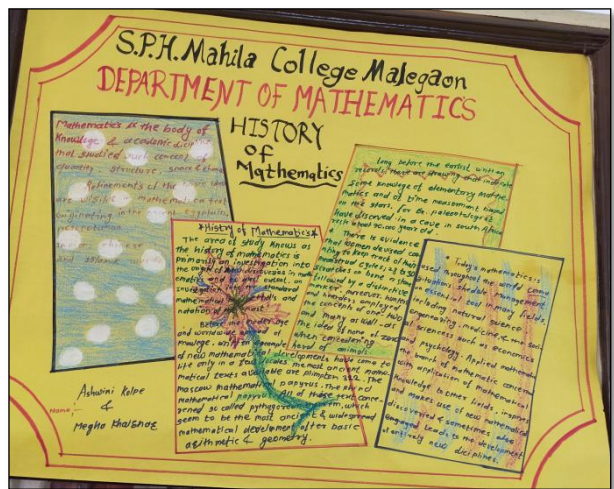 S.P.H. Mahila College Malegaon
DEPARTMENT OF MATHEMATICS
HISTORY
of
Mathematics
Mathematics is the body of
Knowlege & academic
that studied concept of
quantity, structure, space &
Refinements of the basic ideas
are visible in mathematical text
originating in the egyptain,
and chinese
and islamic
*Histry of Mathematics*
The area of study Knows as
the history of mathematics is
primarily an investigation into
the origin of discoveries in
mathematics and to a extent, an
investigation into the standard
mathematical methods and
notation of the past.
Before the modern age
and worldwide spread of
knowlege, written example
of new mathematical developments have come to
life only in a few locales. The most ancient mathe
matical texts available are plimpton 322. The
moscow mathematics papyrus. The rhind
mathematical papyrus. All of these texts conce-
rened so called pythagorean, which
seem to be the most ancient & widespread
mathematical development after basic
arithmetic & geometry.
Long before the earlist written
records, there are drawing that indicate
Some knowlege of elementary Mathe
matics and of time measurment based
on the stars, for Ex. paleontologist
have discoverd in a cave in south Africa
There is evidence
that women devised
to keep track of their
menstrual cycles; 28 to 30
scratches on bone or stone
followed by a distinctive
marker, moreover, hunters
and herders employed the
concepts of one, two
and many as well as
the idea of none or zero
when considering
herd of animals.
• Today, mathematics is
used throughout the world
situations, shedule management
an essential tool in many fields,
including natural science,
engineering, medicine & the social
sciences such as economics
and psychology. Applied mathematics
the branch of mathematic concerned
with application of mathematical
Knowledge to other fields, inspires
and makes use of new mathematical
discoveries & sometimes also
leads to the development
of entirely new diciplines.
Ashwini Kolpe
Name:-
&
Megha Khairnar